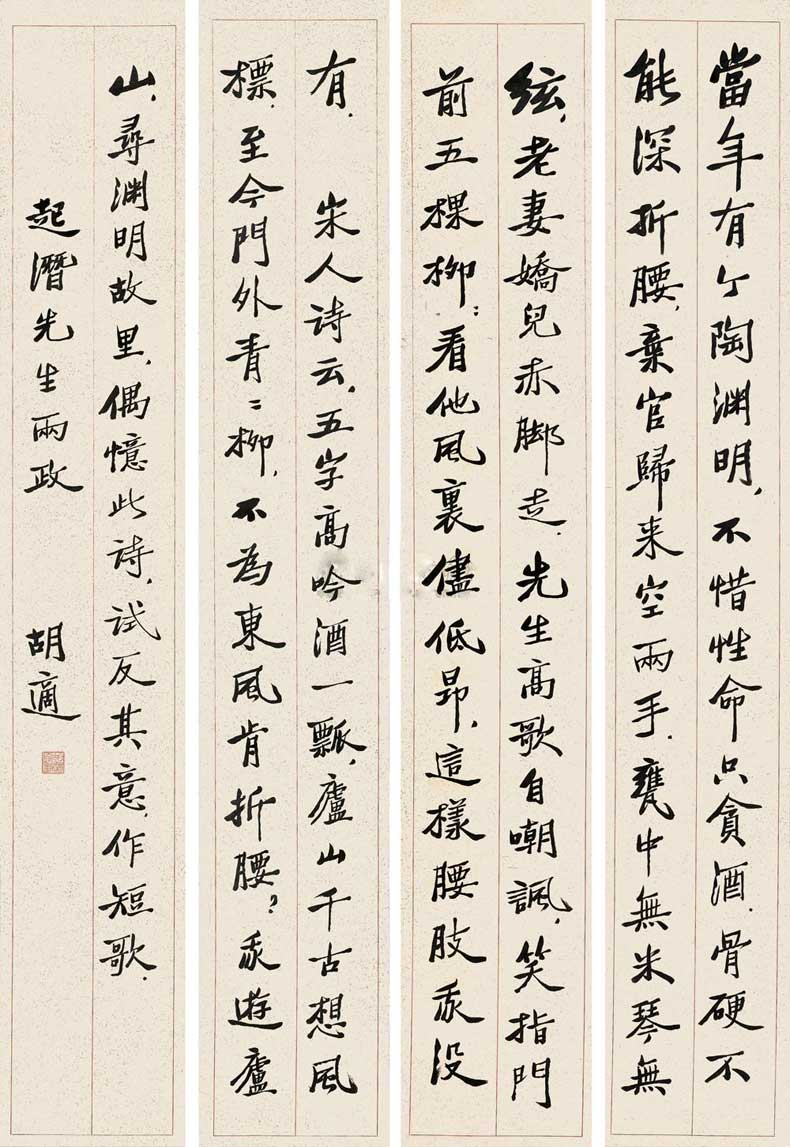 當年有个陶渊明，不惜性命只貪酒．骨硬不
能深折腰，棄官歸来空兩手．甕中無米琴無
絃，老妻嬌兒赤脚走．先生高歌自嘲諷，笑指門
前五棵柳：看他風裏儘低昂，這樣腰肢我没
有．　宋人诗云，五字高吟酒一瓢，廬山千古想風
標，至今門外青〻柳，不为東風肯折腰？我遊廬
山，尋渊明故里，偶憶此诗，试反其意，作短歌．
起潛先生兩政　胡適